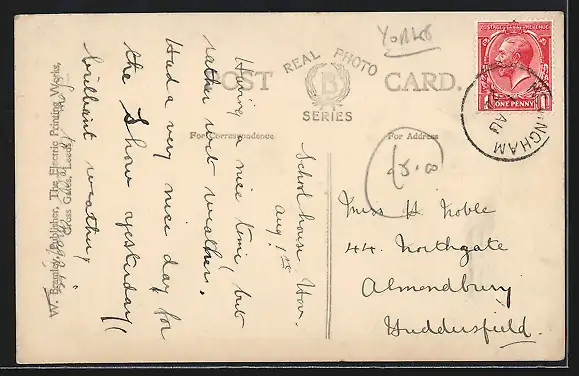 Yorks
POST CARD.
REAL PHOTO
B
SERIES
For Correspondence
For Address
POSTAGE REVENUE
ONE PENNY
INGHAM
AU
School house
Aug 1st
Having a nice time, but
rather wet weather.
Had a very nice day for
the Show yesterday
brilliant weather,
Miss H Noble
44. Northgate
Almondbury
Huddersfield.
W. Bramley, Publisher, The Electric Printing Works,
Cross Gates, Leeds.